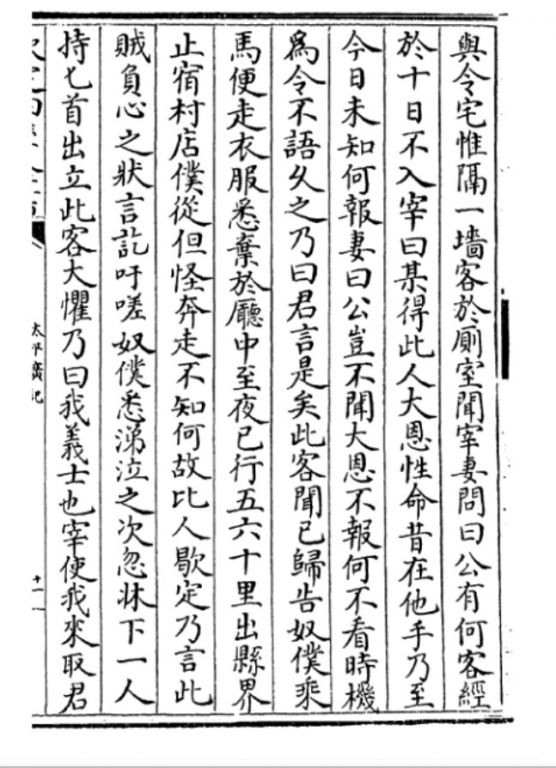 與令宅惟隔一墻客於廁室聞宰妻問曰公有何客經
於十日不入宰曰某得此人大恩性命昔在他手乃至
今日未知何報妻曰公豈不聞大恩不報何不看時機
為令不語乆之乃曰君言是矣此客聞已歸告奴僕乘
馬便走衣服悉棄於廳中至夜已行五六十里出縣界
止宿村店僕從但怪奔走不知何故比人歇定乃言此
賊負心之狀言訖吁嗟奴僕悉涕泣之次忽牀下一人
持匕首出立此客大懼乃曰我義士也宰使我來取君
太平廣記